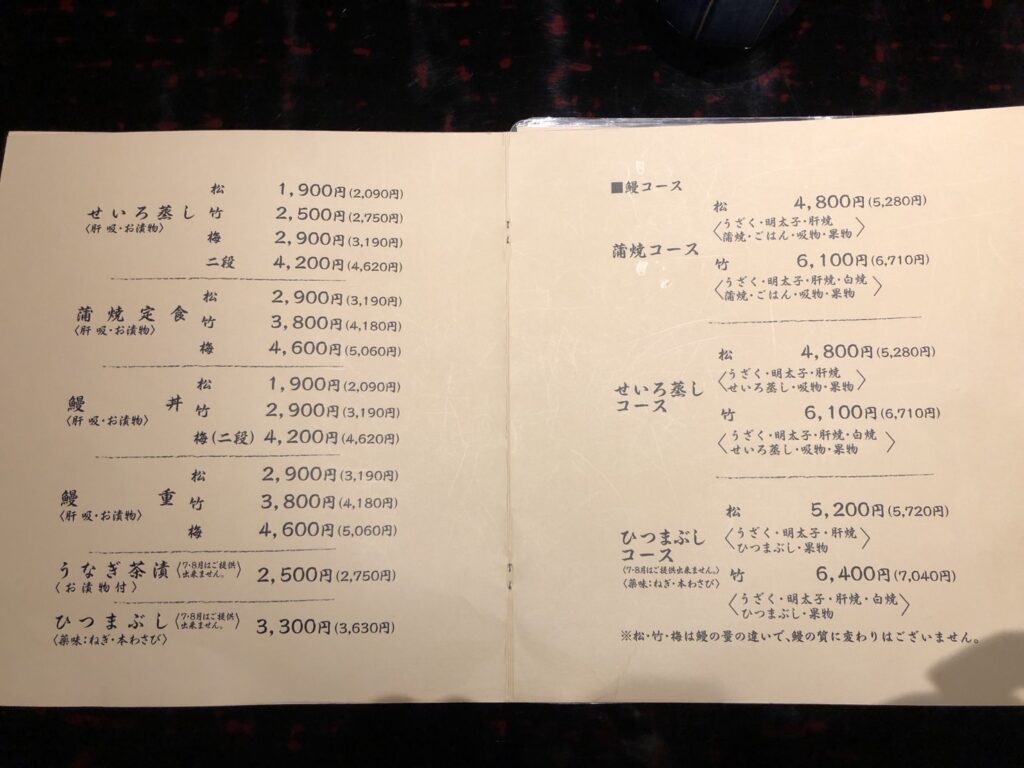 松 1,900円(2,090円)
せいろ蒸し 竹 2,500円(2,750円)
〈肝吸・お漬物〉
梅 2,900円(3,190円)
二段 4,200円(4,620円)
松 2,900円(3,190円)
蒲焼定食 竹 3,800円(4,180円)
〈肝吸・お漬物〉
梅 4,600円(5,060円)
松 1,900円(2,090円)
鰻丼 竹 2,900円(3,190円)
〈肝吸・お漬物〉
梅(二段) 4,200円(4,620円)
松 2,900円(3,190円)
鰻重 竹 3,800円(4,180円)
〈肝吸・お漬物〉
梅 4,600円(5,060円)
うなぎ茶漬〈7・8月はご提供出来ません。〉 2,500円(2,750円)
〈お漬物付〉
ひつまぶし〈7・8月はご提供出来ません。〉 3,300円(3,630円)
〈薬味:ねぎ・本わさび〉
■鰻コース
松 4,800円(5,280円)
〈うざく・明太子・肝焼
蒲焼・ごはん・吸物・果物〉
蒲焼コース
竹 6,100円(6,710円)
〈うざく・明太子・肝焼・白焼
蒲焼・ごはん・吸物・果物〉
松 4,800円(5,280円)
〈うざく・明太子・肝焼
せいろ蒸し・吸物・果物〉
せいろ蒸し
コース
竹 6,100円(6,710円)
〈うざく・明太子・肝焼・白焼
せいろ蒸し・吸物・果物〉
松 5,200円(5,720円)
〈うざく・明太子・肝焼
ひつまぶし・果物〉
ひつまぶし
コース
〈7・8月はご提供出来ません。〉
〈薬味:ねぎ・本わさび〉
竹 6,400円(7,040円)
〈うざく・明太子・肝焼・白焼
ひつまぶし・果物〉
※松・竹・梅は鰻の量の違いで、鰻の質に変わりはございません。